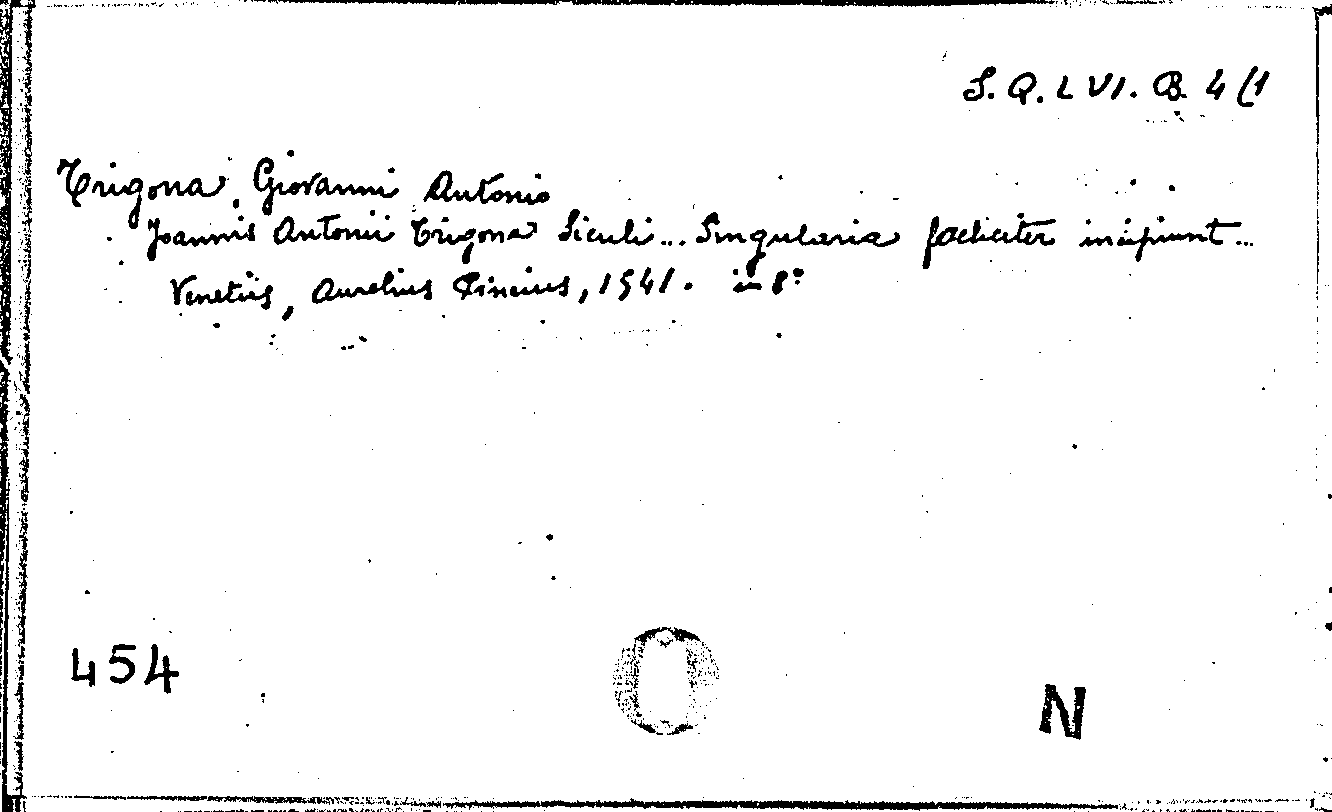 S. Q. LVI. B. 4 (1
Trigona, Giovanni Antonio
Joannis Antonii Trigona Siculi... Singularia foeliciter incipiunt...
Venetiis, Aurelius Pincius, 1541. in 8°
454
N